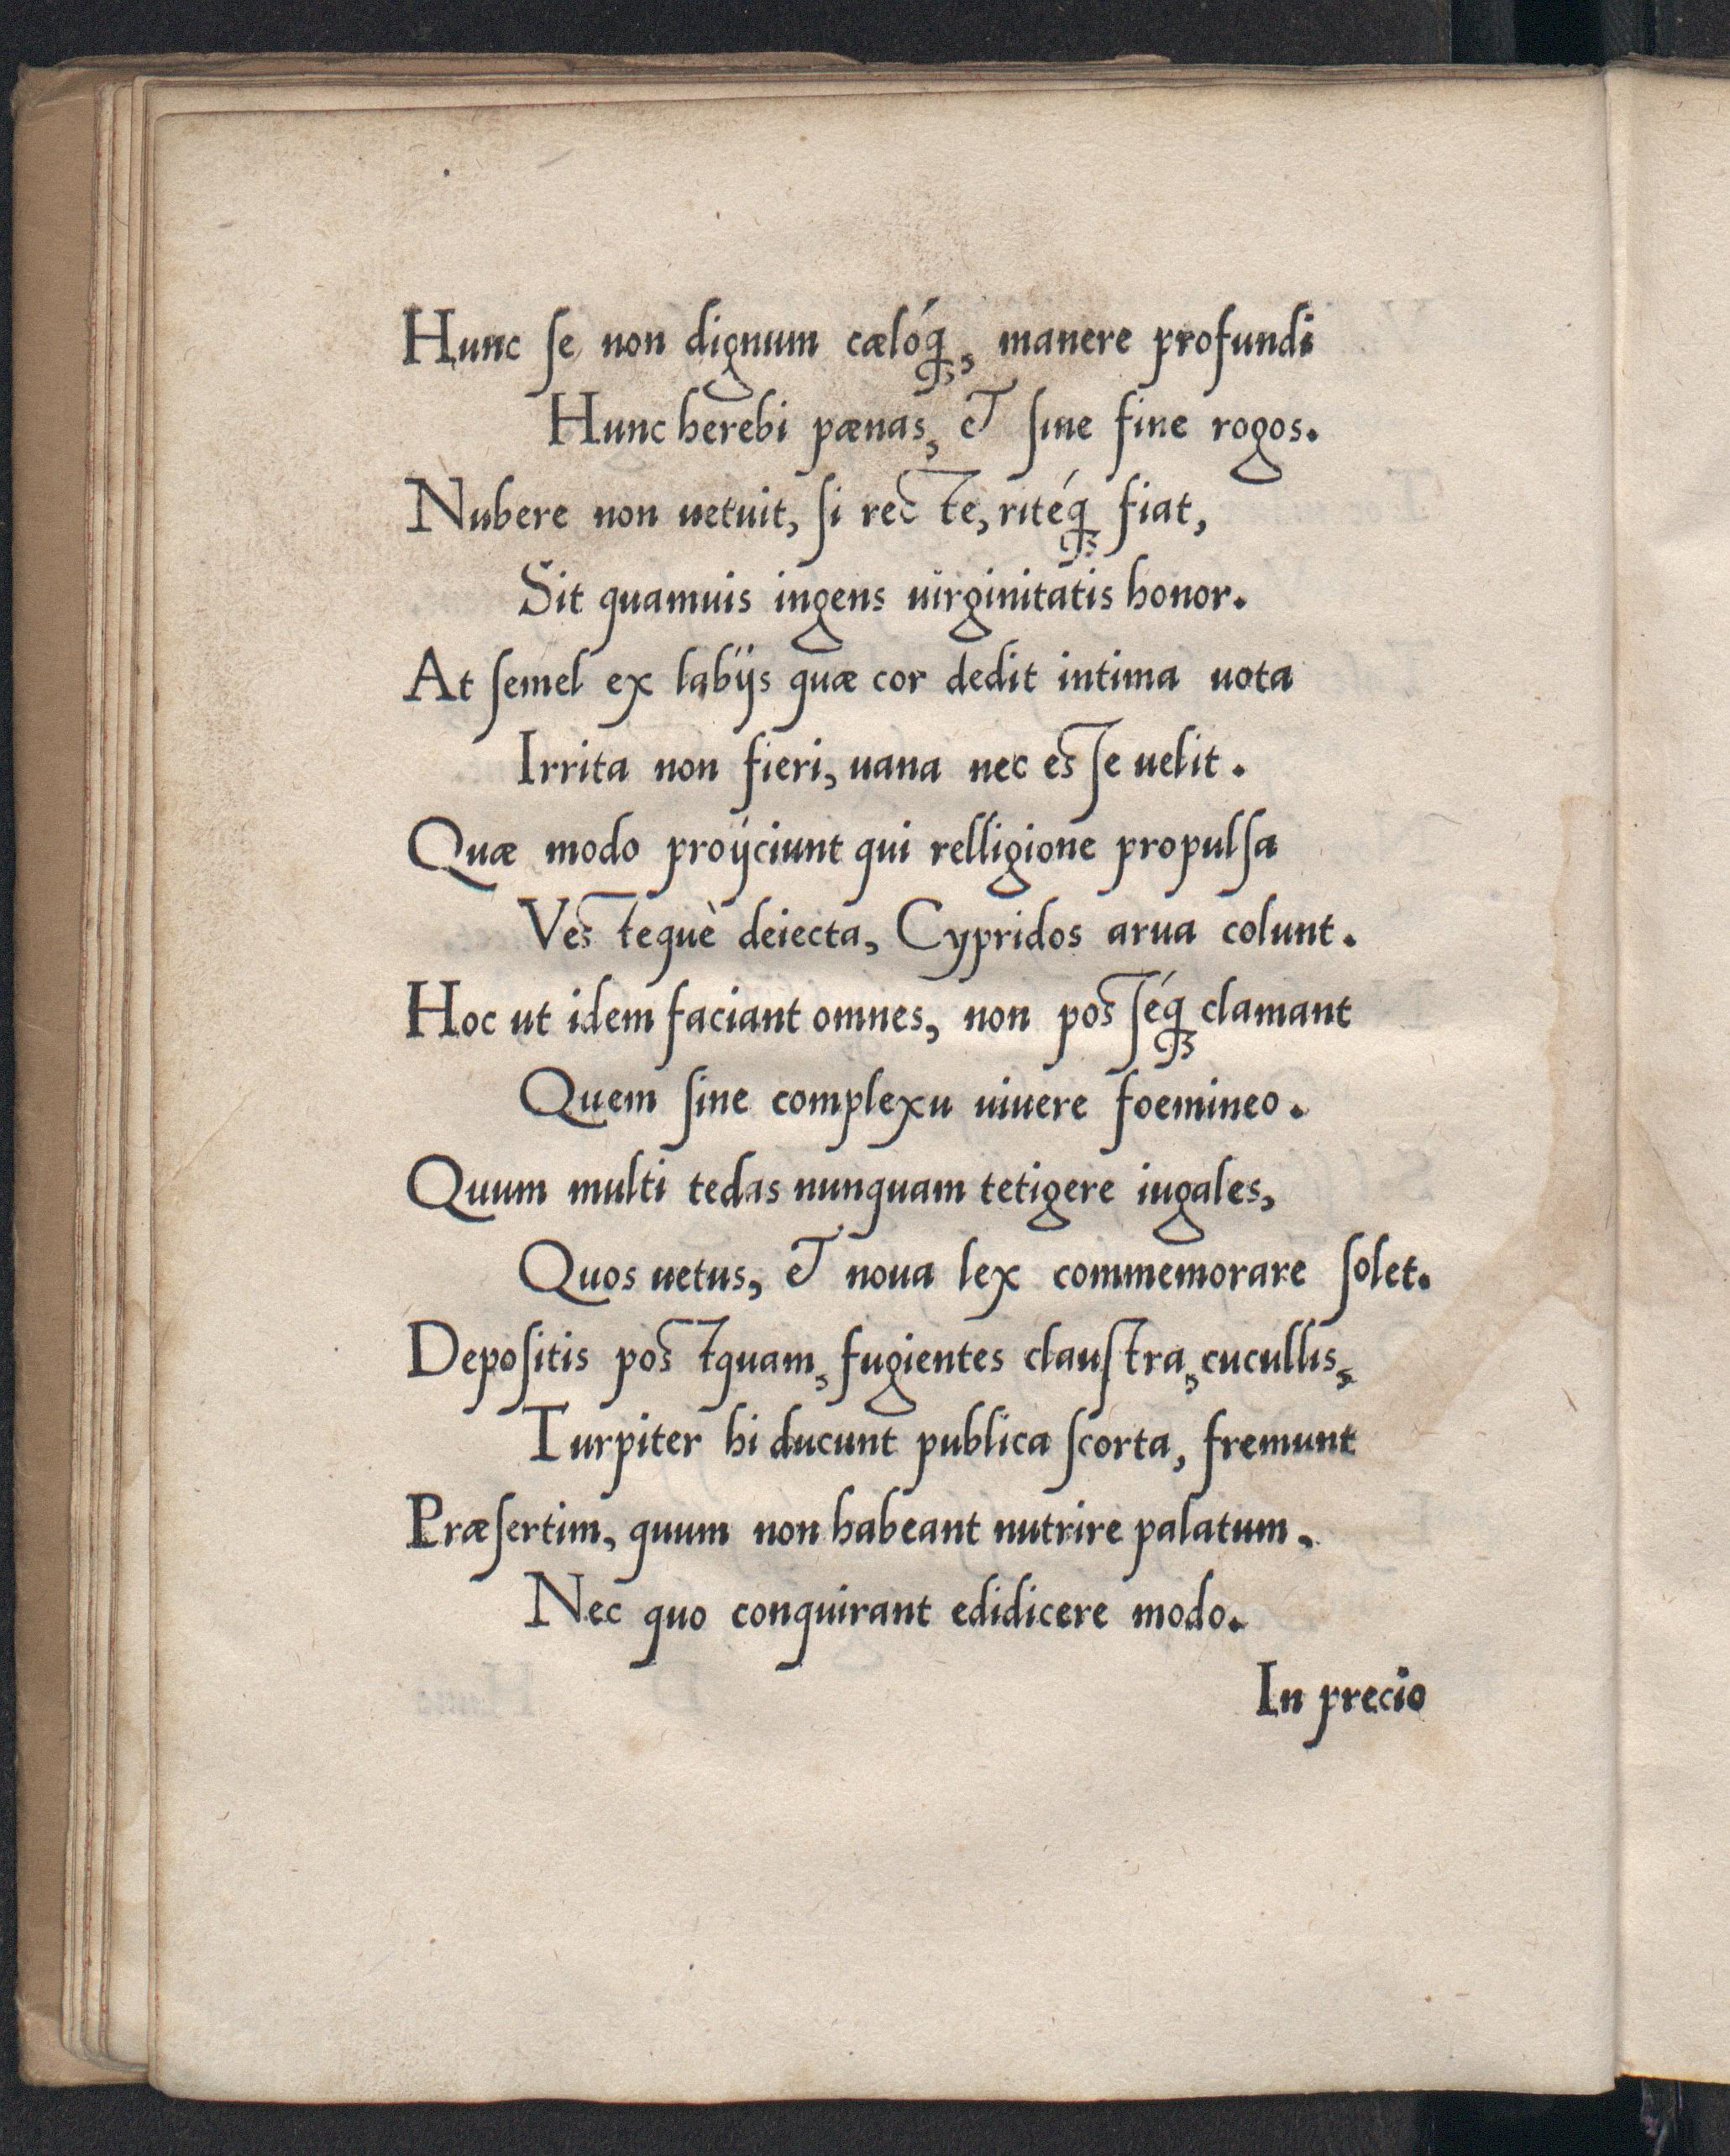 Hunc ſe non dignum cælóq;, manere profundi
Hunc herebi pænas, & ſine fine rogos.
Nubere non uetuit, ſi recte, ritéq; fiat,
Sit quamuis ingens uirginitatis honor.
At ſemel ex labijs quæ cor dedit intima uota
Irrita non fieri, uana nec esſe uelit.
Quæ modo proijciunt qui relligione propulſa
Vestequè deiecta, Cypridos arua colunt.
Hoc ut idem faciant omnes, non posſéq; clamant
Quem ſine complexu uiuere foemineo.
Quum multi tedas nunquam tetigere iugales,
Quos uetus, & noua lex commemorare ſolet.
Depoſitis postquam, fugientes clauſtra, cucullis,
Turpiter hi ducunt publica ſcorta, fremunt
Præſertim, quum non habeant nutrire palatum,
Nec quo conquirant edidicere modo.
In precio